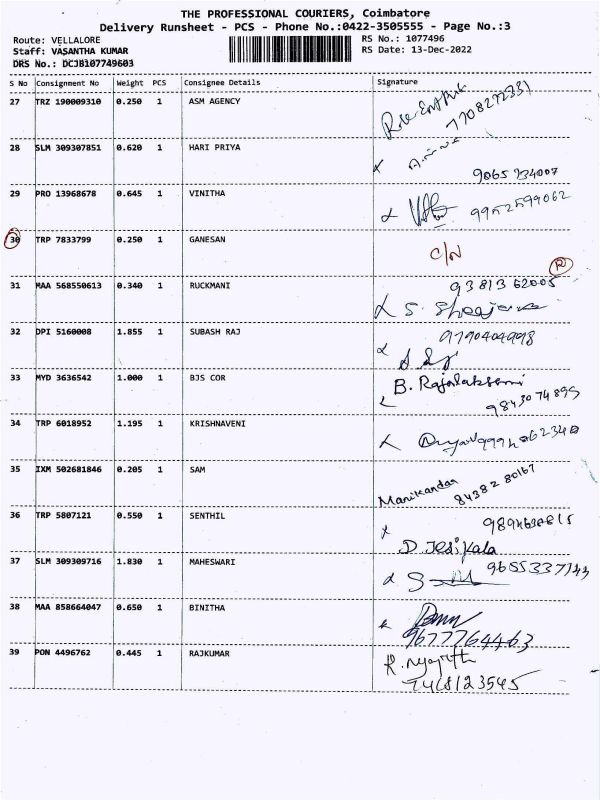 THE PROFESSIONAL COURIERS, Coimbatore
Delivery Runsheet - PCS - Phone No.:0422-3505555 - Page No.:3
Route: VELLALORE RS No.: 1077496
Staff: VASANTHA KUMAR RS Date: 13-Dec-2022
DRS No.: DCJB107749603
S No Consignment No Weight PCS Consignee Details Signature
27 TRZ 190009310 0.250 1 ASM AGENCY
28 SLM 309307851 0.620 1 HARI PRIYA
9065 734007
29 PRO 13968678 0.645 1 VINITHA
9952599062
30 TRP 7833799 0.250 1 GANESAN C/N
R
31 MAA 568550613 0.340 1 RUCKMANI 93813 62005
32 DPI 5160008 1.855 1 SUBASH RAJ 9790404998
33 MYD 3636542 1.000 1 BJS COR B. Rajalaksemi
9843074895
34 TRP 6018952 1.195 1 KRISHNAVENI
35 IXM 502681846 0.205 1 SAM Manikandan 84382 80167
36 TRP 5807121 0.550 1 SENTHIL 9894630815
D. Jesi Kala
37 SLM 309309716 1.830 1 MAHESWARI 9655337743
38 MAA 858664047 0.650 1 BINITHA
9677764463
39 PON 4496762 0.445 1 RAJKUMAR